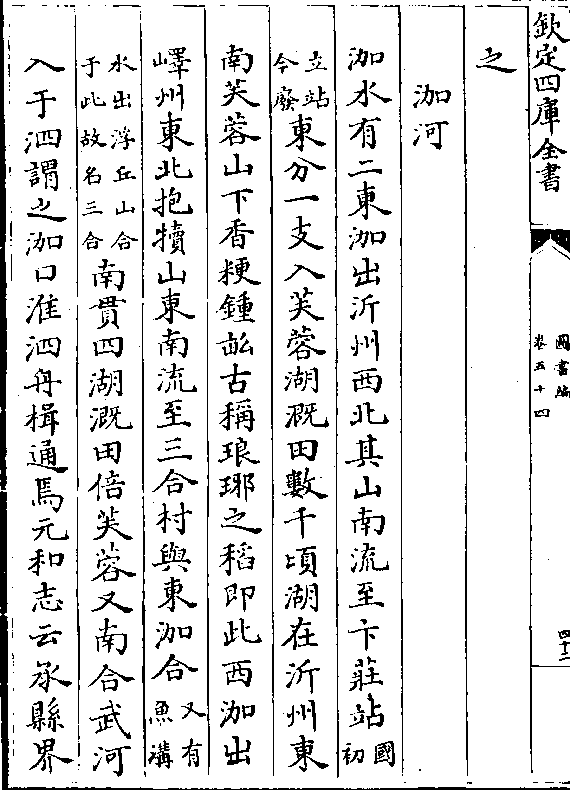 欽定四庫全書
圖書編
卷五十四
四十二
之
泇河
泇水有二東泇出沂州西北其山南流至卞莊站國初
立站今廢東分一支入芙蓉湖溉田數千頃湖在沂州東
南芙蓉山下香粳鍾畝古稱琅琊之稻即此西泇出
嶧州東北抱犢山東南流至三合村與東泇合又有魚溝
水出浮丘山合于此故名三合南貫四湖溉田倍芙蓉又南合武河
入于泗謂之泇口淮泗舟楫通焉元和志云承縣界